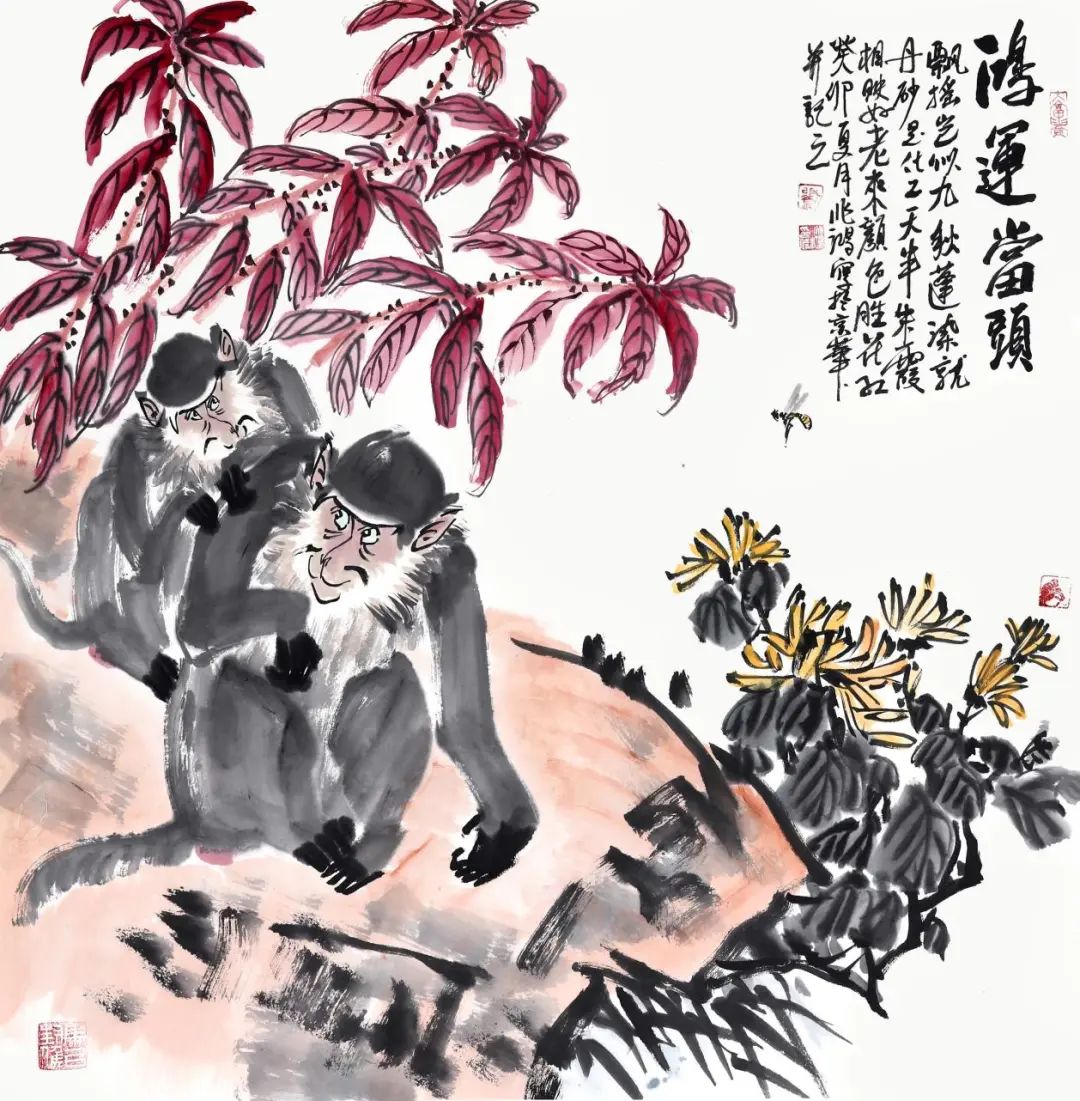 鴻運當頭
飄摇岂似九秋蓬染就
丹砂是化工天半朱霞
相映好老來顏色胜花红
癸卯夏月兆鴻写於京華
并記之